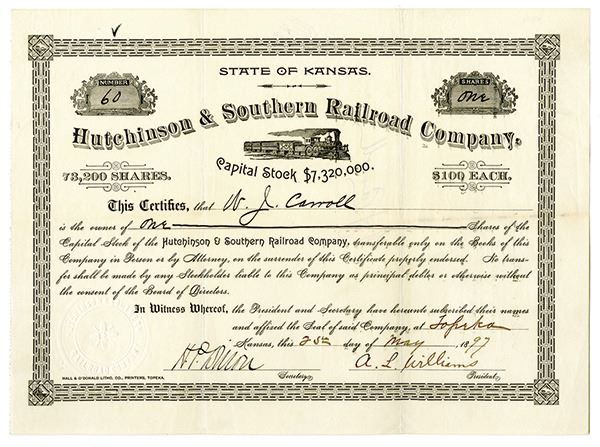 STATE OF KANSAS.
NUMBER
60
SHARES
One
Hutchinson & Southern Railroad Company.
Capital Stock $7,320,000.
73,200 SHARES.
$100 EACH.
This Certifies, that W. J. Carroll
is the owner of One Shares of the
Capital Stock of the Hutchinson & Southern Railroad Company, transferable only on the Books of this
Company in Person or by Attorney, on the surrender of this Certificate properly endorsed. No trans-
fer shall be made by any Stockholder liable to this Company as principal debtor or otherwise without
the consent of the Board of Directors.
In Witness Whereof, the President and Secretary have hereunto subscribed their names
and affixed the Seal of said Company, at Topeka
Kansas, this 25th day of May 1897
A. L. Williams
Secretary.
President.
HALL & O'DONALD LITHO. CO., PRINTERS, TOPEKA.